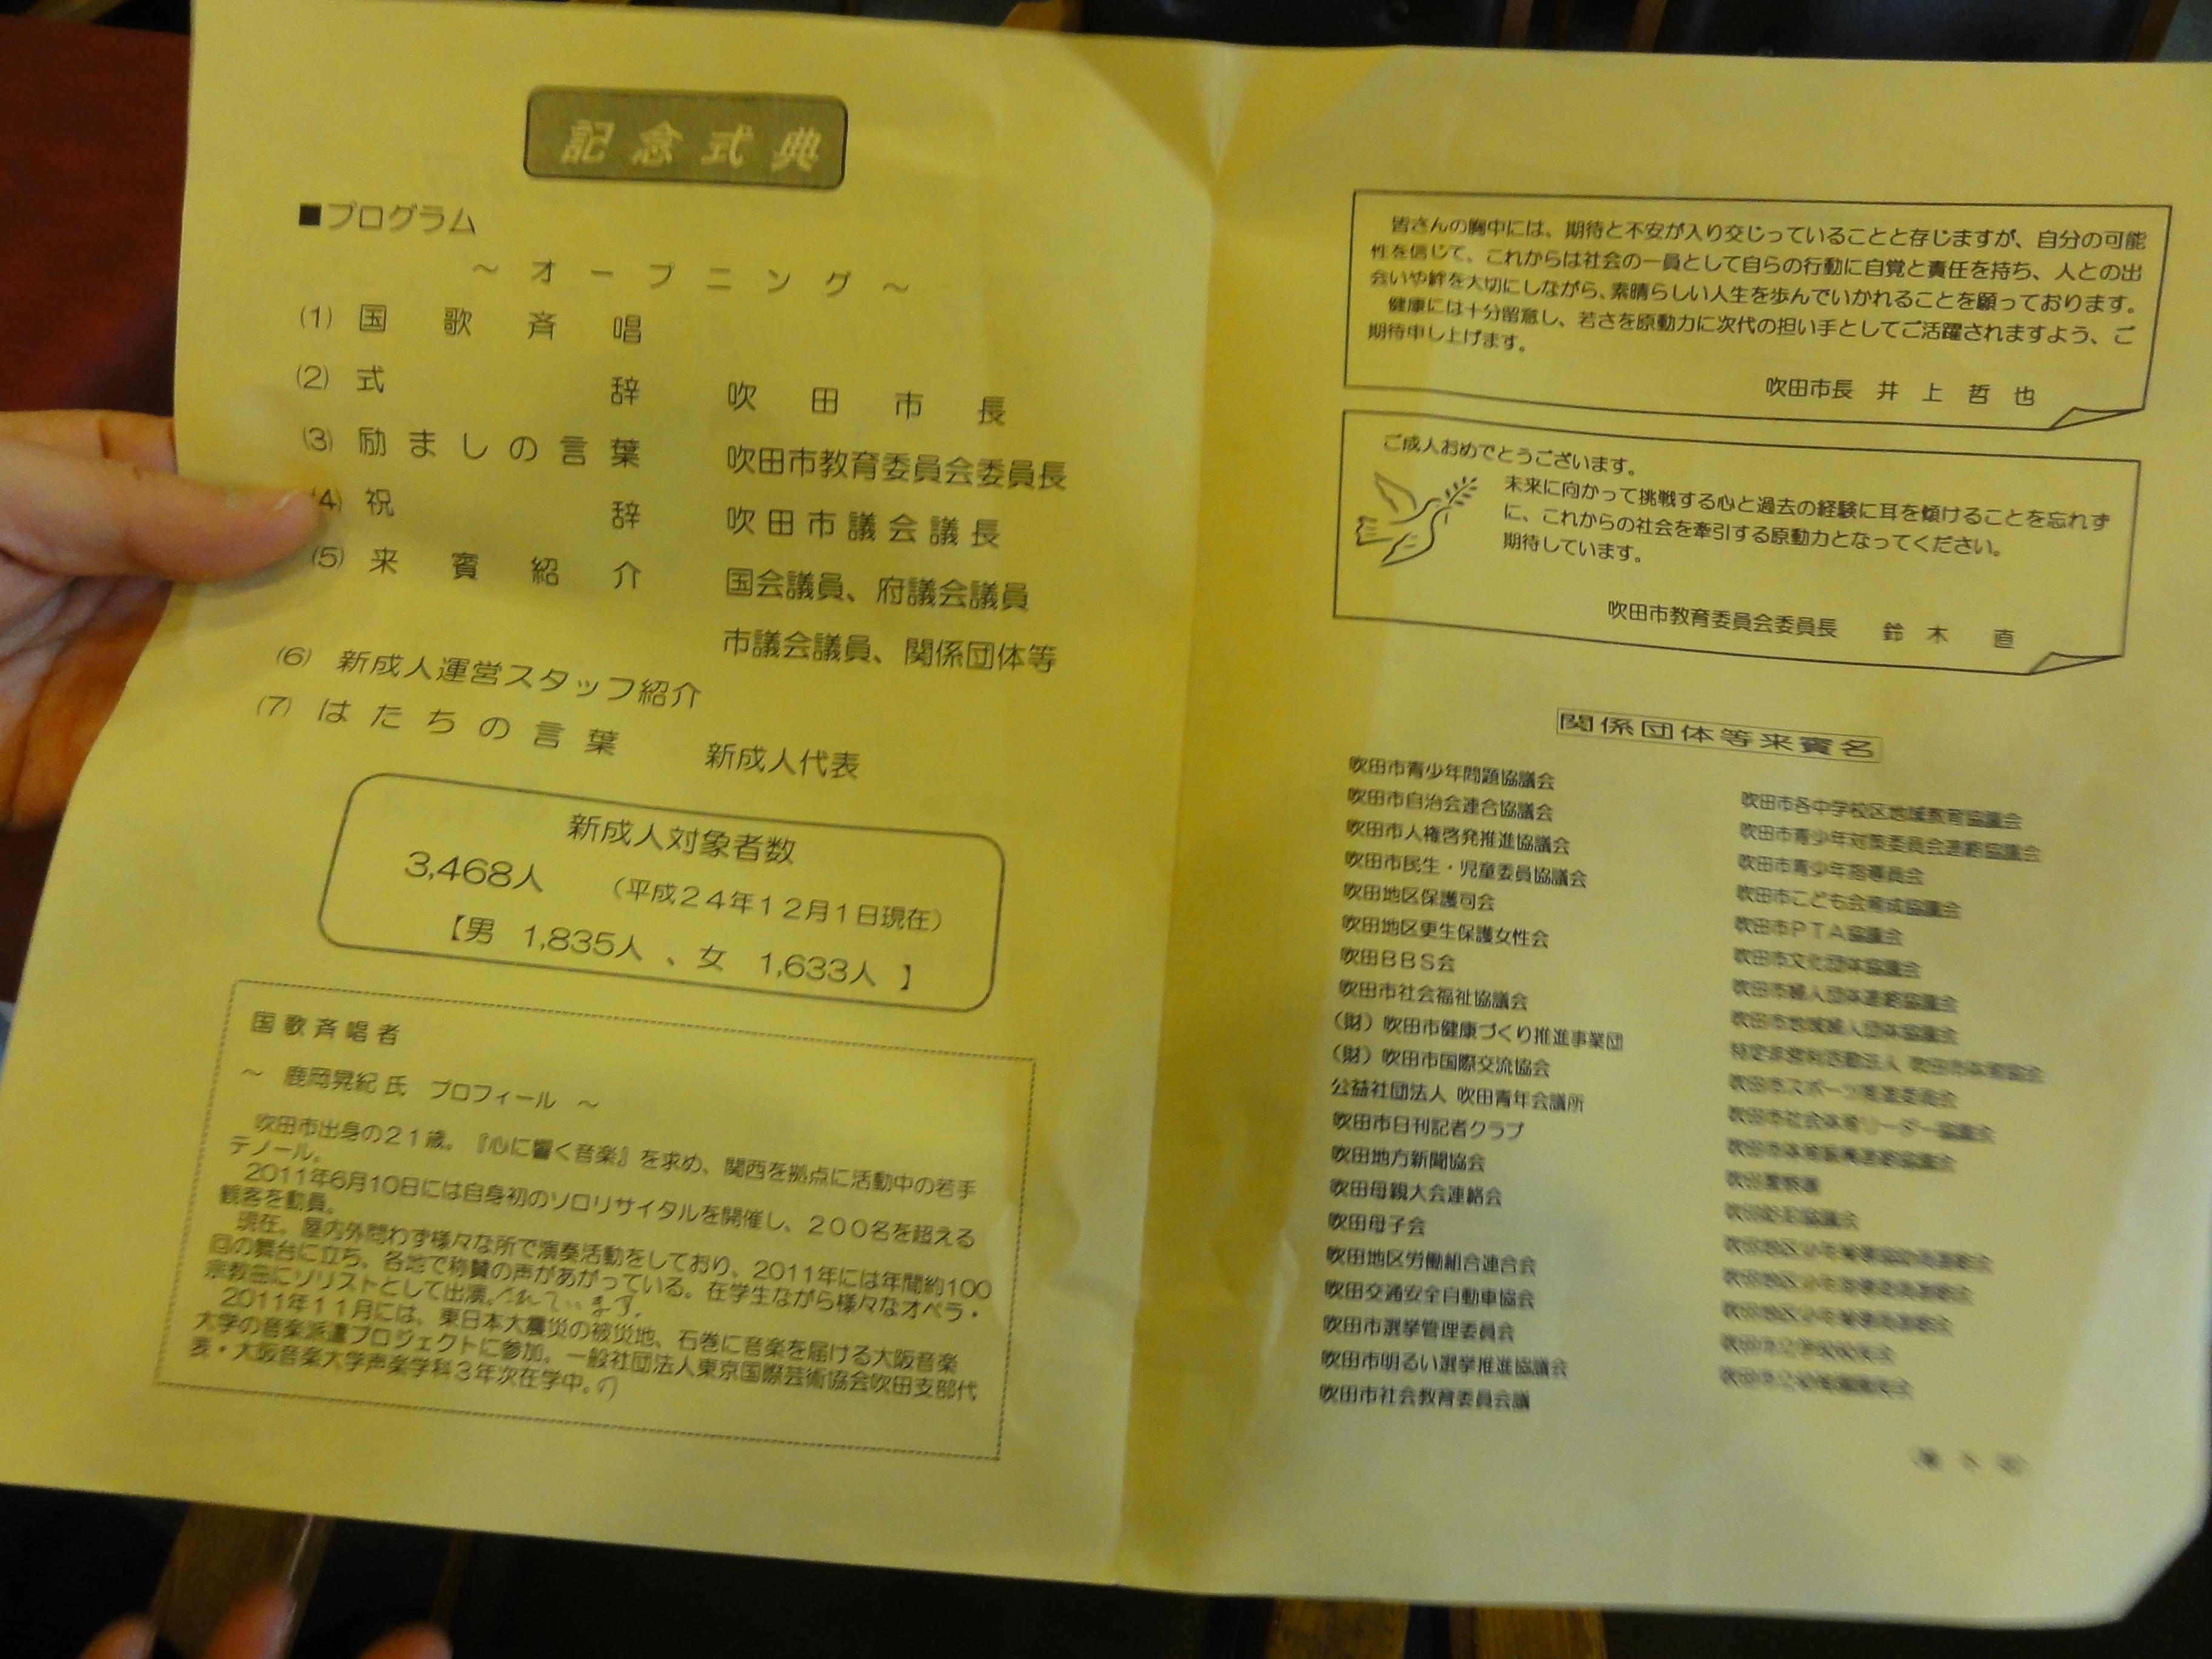 記念式典
■プログラム
～オープニング～
(1) 国歌斉唱
(2) 式辞 吹田市長
(3) 励ましの言葉 吹田市教育委員会委員長
(4) 祝辞 吹田市議会議長
(5) 来賓紹介 国会議員、府議会議員
市議会議員、関係団体等
(6) 新成人運営スタッフ紹介
(7) はたちの言葉 新成人代表
新成人対象者数
3,468人 （平成24年12月1日現在）
【男 1,835人 、女 1,633人 】
国歌斉唱者
～ 鹿岡晃紀 氏 プロフィール ～
吹田市出身の21歳。『心に響く音楽』を求め、関西を拠点に活動中の若手
テノール。
2011年6月10日には自身初のソロリサイタルを開催し、200名を超える
観客を動員。
現在。屋内外問わず様々な所で演奏活動をしており、2011年には年間約100
回の舞台に立ち、各地で称賛の声があがっている。在学生ながら様々なオペラ・
宗教曲にソリストとして出演。
2011年11月には、東日本大震災の被災地、石巻に音楽を届ける大阪音楽
大学の音楽派遣プロジェクトに参加。一般社団法人東京国際芸術協会吹田支部代
表・大阪音楽大学声楽学科3年次在学中。
皆さんの胸中には、期待と不安が入り交じっていることと存じますが、自分の可能
性を信じて、これからは社会の一員として自らの行動に自覚と責任を持ち、人との出
会いや絆を大切にしながら、素晴らしい人生を歩んでいかれることを願っております。
健康には十分留意し、若さを原動力に次代の担い手としてご活躍されますよう、ご
期待申し上げます。
吹田市長 井上哲也
ご成人おめでとうございます。
未来に向かって挑戦する心と過去の経験に耳を傾けることを忘れず
に、これからの社会を牽引する原動力となってください。
期待しています。
吹田市教育委員会委員長 鈴木 直
関係団体等来賓名
吹田市青少年問題協議会
吹田市自治会連合協議会
吹田市人権啓発推進協議会
吹田市民生・児童委員協議会
吹田地区保護司会
吹田地区更生保護女性会
吹田BBS会
吹田市社会福祉協議会
（財）吹田市健康づくり推進事業団
（財）吹田市国際交流協会
公益社団法人 吹田青年会議所
吹田市日刊記者クラブ
吹田地方新聞協会
吹田母親大会連絡会
吹田母子会
吹田地区労働組合連合会
吹田交通安全自動車協会
吹田市選挙管理委員会
吹田市明るい選挙推進協議会
吹田市社会教育委員会議
吹田市各中学校区地域教育協議会
吹田市青少年対策委員会連絡協議会
吹田市青少年指導員会
吹田市こども会育成協議会
吹田市PTA協議会
吹田市文化団体協議会
吹田市婦人団体連絡協議会
吹田市地域婦人団体協議会
特定非営利活動法人 吹田市体育協会
吹田市スポーツ推進委員会
吹田市社会体育リーダー協議会
吹田市体育振興連絡協議会
吹田警察署